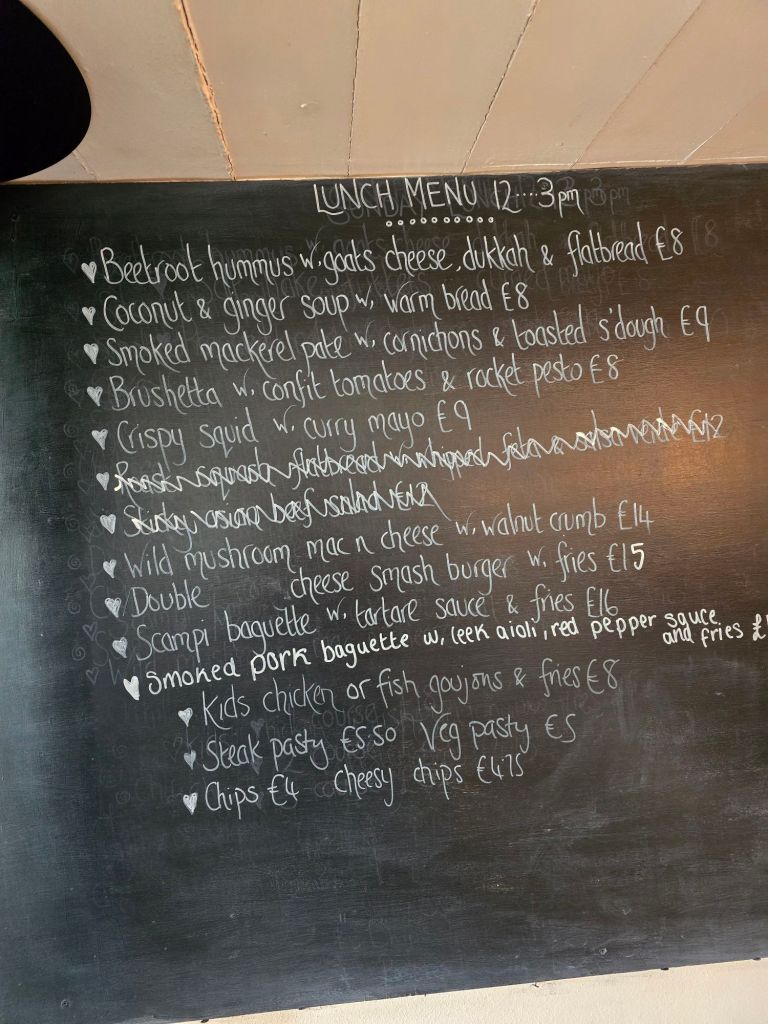 LUNCH MENU 12....3pm
Beetroot hummus w. goats cheese, dukkah & flatbread £8
Coconut & ginger soup w. warm bread £8
Smoked mackerel pate w. cornichons & toasted s'dough £9
Brushetta w. confit tomatoes & rocket pesto £8
Crispy squid w. curry mayo £9
Roast squash flatbread w. whipped feta & £12
Sticky asian beef salad £12
Wild mushroom mac n cheese w. walnut crumb £14
Double cheese smash burger w. fries £15
Scampi baguette w. tartare sauce & fries £16
Smoked pork baguette w. leek aioli, red pepper sauce
and fries
Kids chicken or fish goujons & fries £8
Steak pasty £5.50 Veg pasty £5
Chips £4 cheesy chips £4.75